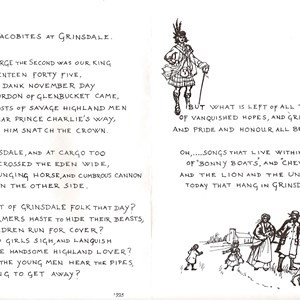 ACOBITES AT GRINSDALE.
RGE THE SECOND WAS OUR KING
ENTEEN FORTY FIVE,
DANK NOVEMBER DAY
ORDON OF GLENBUCKET CAME,
STS OF SAVAGE HIGHLAND MEN
AR PRINCE CHARLIE'S WAY,
HIM SNATCH THE CROWN.
NSDALE, AND AT CARGO TOO
CROSSED THE EDEN WIDE,
UNGING HORSE, AND CUMBROUS CANNON
N THE OTHER SIDE.
T OF GRINSDALE FOLK THAT DAY?
MERS HASTE TO HIDE THEIR BEASTS,
DREN RUN FOR COVER?
GIRLS SIGH, AND LANQUISH
E HANDSOME HIGHLAND LOVER?
THE YOUNG MEN HEAR THE PIPES,
NG TO GET AWAY?
1995
BUT WHAT IS LEFT OF ALL T
OF VANQUISHED HOPES, AND GRI
AND PRIDE AND HONOUR ALL B
OH,.....SONGS THAT LIVE WITHIN
OF 'BONNY BOATS', AND 'CHE
AND THE LION AND THE UN
TODAY THAT HANG IN GRINS